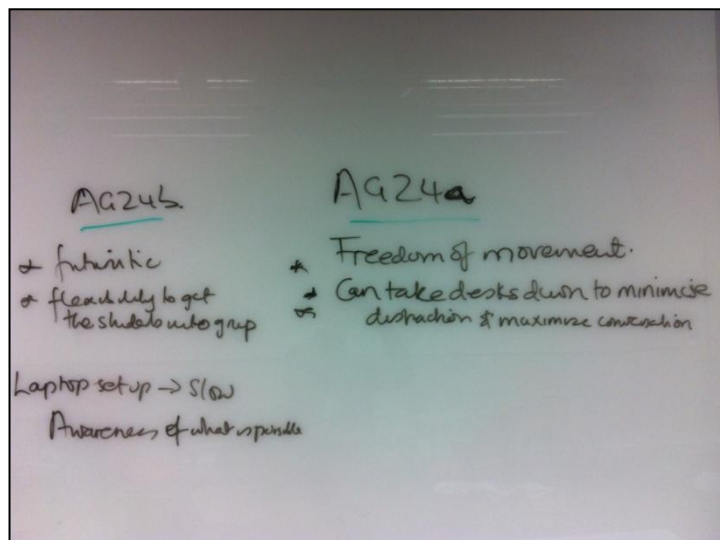 AG24b.
* futuristic
* flexibility to get
the students into group
Laptop setup → Slow
Awareness of what is possible
AG24a
* Freedom of movement.
* Can take desks down to minimise
* distraction & maximize conversation